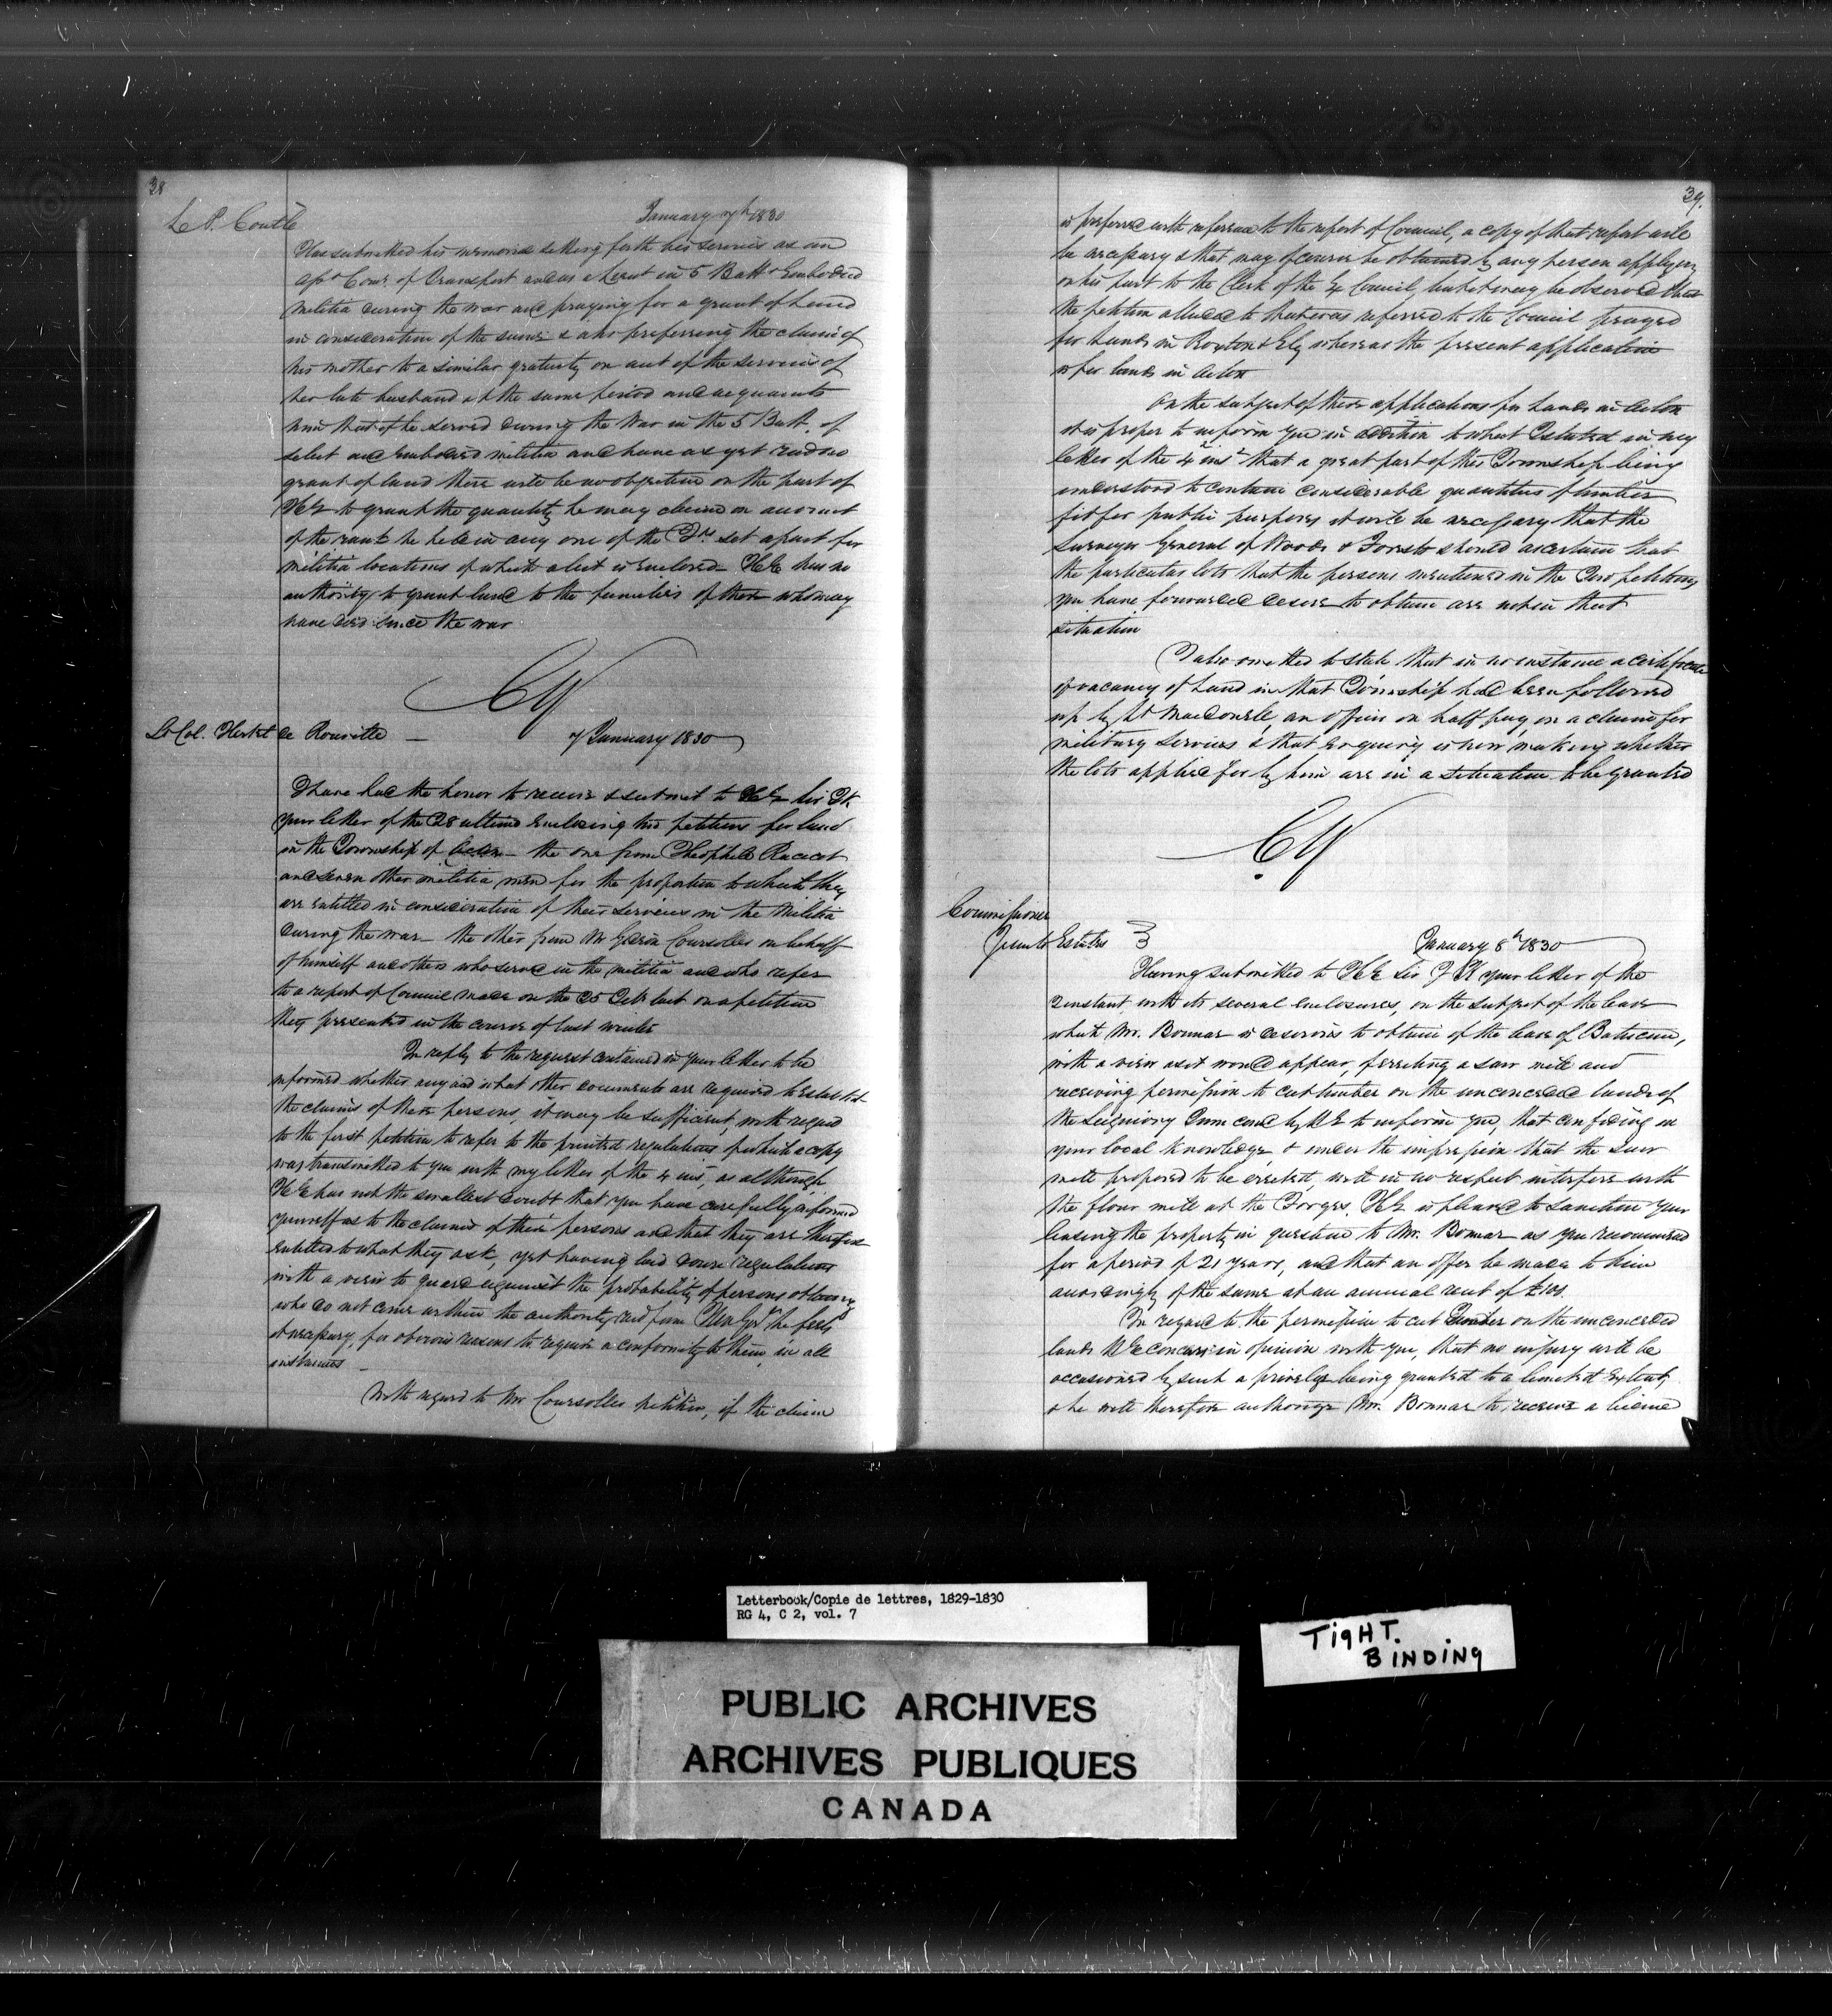 38
L. P. Coutlée
January 7th 1830
Has submitted his memorial setting forth his services as an
Asst Comy. of Transport and as a Lieut in 5 Battn Embodied
Militia during the war and praying for a grant of Land
in consideration of the same & also preferring the claim of
his mother to a similar gratuity on acct of the services of
her late husband at the same period and acquaints
him that if he served during the War in the 5 Batt. of
select and Embodied militia and have as yet recd no
grant of land there will be no objection on the part of
HE to grant the quantity he may claim on account
of the rank he held in any one of the Tps set apart for
militia locations of which a list is enclosed - HE has no
authority to grant land to the families of those who may
have died since the war
CY
Lt Col. Hertel de Rouville — 7 January 1830
I have had the honor to receive & submit to HE Sir Js.
your letter of the 28 ultimo enclosing two petitions for land
in the Township of Acton - the one from Theophile Racicot
and seven other militia men for the proportion to which they
are entitled in consideration of their services in the Militia
during the war - the other from Mr Coursolles on behalf
of himself and others who served in the militia and who refer
to a report of Council made on the 25 last on a petition
they presented in the course of last winter
In reply to the request contained in your letter to be
informed whether any and what other documents are required to establish
the claims of these persons, it may be sufficient, with regard
to the first petition to refer to the printed regulations of which a copy
was transmitted to you with my letter of the 4 inst, as although
HE has not the smallest doubt that you have carefully informed
yourself as to the claims of these persons and that they are therefore
entitled to what they ask, yet having laid down regulations
with a view to guard against the probability of persons obtaining
who do not come within the authority recd from Govt he feels
it necessary, for obvious reasons to require a conformity to them in all
instances —
With regard to Mr Coursolles petition, if the claim
39.
is preferred with reference to the report of Council, a copy of that report will
be necessary & that may of course be obtained by any person applying
on his part to the Clerk of the Council, but it may be observed that
the petition alluded to that was referred to the Council prayed
for Lands in Roxton & Ely whereas the present application
is for lands in Acton
On the subject of these applications for Lands in Acton
it is proper to inform you in addition to what I stated in my
letter of the 4 inst that a great part of this Township being
understood to contain considerable quantities of timber
fit for public purposes it will be necessary that the
Surveyor General of Woods & Forests should ascertain that
the particular lots that the persons mentioned in the two petitions
you have forwarded desire to obtain are not in that
situation
I also omitted to state that in no instance a certificate
of vacancy of Land in that Township had been followed
up by Lt Macdonell, an officer on half pay, on a claim for
military services & that enquiry is now making whether
the lots applied for by him are in a situation to be granted
CY
Commissioner
Jesuits Estates } January 8th 1830
Having submitted to HE Sir J K your letter of the
2 instant with its several enclosures, on the subject of the lease
which Mr. Bonnar is desirous to obtain of the lease of Batiscan,
with a view as it would appear, of erecting a saw mill and
receiving permission to cut timber on the unconceded lands of
the Seigniory I am comd by HE to inform you, that confiding in
your local knowledge, & under the impression that the saw
mill proposed to be erected, will in no respect interfere with
the flour mill at the Forges, HE is pleased to sanction your
leasing the property in question to Mr. Bonnar as you recommend
for a period of 21 years, and that an offer be made to him
accordingly of the same at an annual rent of £100.
In regard to the permission to cut Timber on the unconceded
lands HE concurs in opinion with you, that no injury will be
occasioned by such a privilege being granted to a limited extent,
& he will therefore authorize Mr. Bonnar to receive a license
Letterbook/Copie de lettres, 1829-1830
RG 4, C 2, vol. 7
TIGHT.
BINDING
PUBLIC ARCHIVES
ARCHIVES PUBLIQUES
CANADA